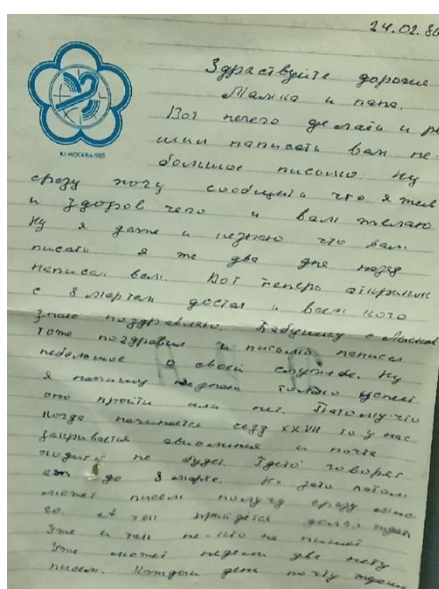 24.02.86
Здраствуйте дорогие
Мамка и папа.
Вот нечего делать и ре
шил написать вам не-
большое письмо. Ну
XII МОСКВА 1985
сразу хочу сообщить что я жив
и здоров чего и вам желаю
Ну я даже и незнаю что вам
писать я же два дня назад
написал вам. Вот теперь открыток
с 8 мартом достал и всем кого
знаю поздравляю. Бабушку с
тоже поздравил и письмо написал
небольшое о своей службе. Ну
я напишу незнаю только успеет
оно пройти или нет. Патомучто
когда начинается сезд XXVII то у нас
закрывается авиалиния и почта
не будет. Гдето говорят
до 8 марта. Но зато потом
может писем получу сразу мно
го. А так прийдется долго ждать
Уже и так не пишет
Уже может недели две нету
писем. Каждый день почту ждем